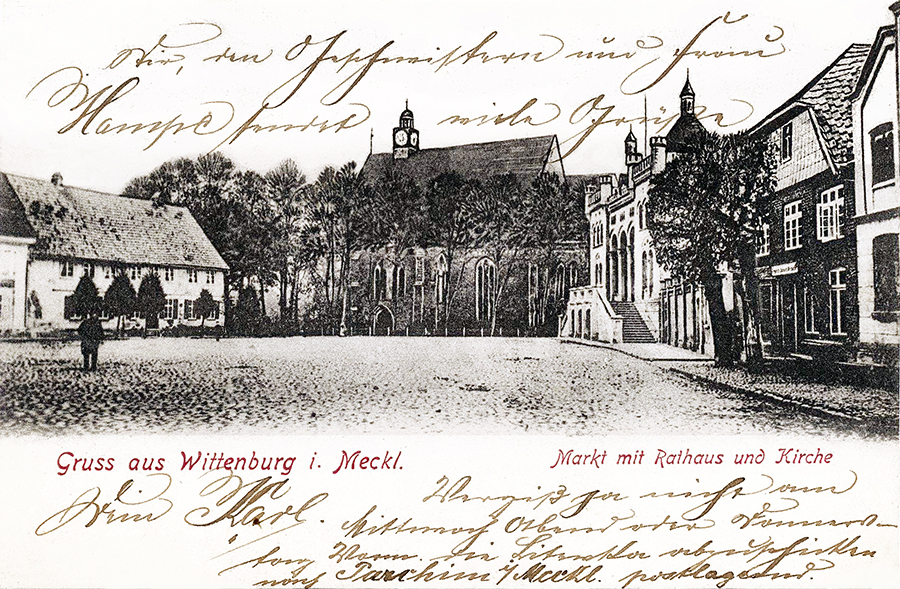 Dir, den Geschwistern und Frau
Hampe sendet viele Grüße
Gruss aus Wittenburg i. Meckl.
Markt mit Rathaus und Kirche
Dein Karl.
Vergiß ja nicht am
Mittwoch Abend oder Donners-
tag Vorm. die abzuschicken
nach Parchim i/Meckl. postlagernd.